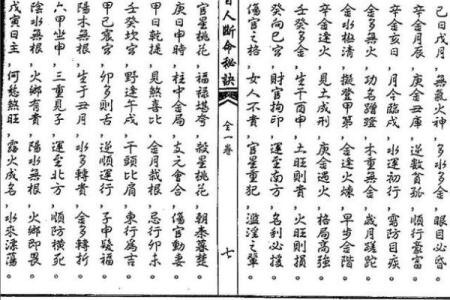 己日戌月，無氣火神，多水多金，眼目必昏。
辛金，庚金丑庫，逆數貧孤，順行豪富。
辛金亥日，月令臨戌，水運初行，防目疾。
金多無火，功名蹭蹬，木重無金，歲月蹉跎。
金水極清，擬登甲第，金逢火煉，早步金階。
辛金逢火，見土成刑，庚金遇火，格局高強。
壬癸多金，生于酉申，土旺則貴，火旺則損。
癸向巳宮，財官拘印，運至南方，名利必攘。
傷官之格，女人不貴，官星重犯，濫淫之輩。
人斷命秘訣 全一卷 七
官星桃花，福祿堪夸，殺星桃花，朝秦暮楚。
庚日申時，柱中金局，支元會合，傷官動妻。
甲日乾提，見煞喜比，金月栽根，忌行卯未。
壬癸坎宮，野逢午戌，干頭比肩，東行為吉。
甲己震宮，卯多則吉，逆順運行，子申疑福。
陽木無根，生于丑月，水多轉貴，金多轉折。
六甲坐申，三重見子，運至北方，順防橫死。
陰水無根，火鄉有貴，陽水無根，火鄉即畏。
戊寅日主，何愁煞旺，露火成名，水來漂蕩。